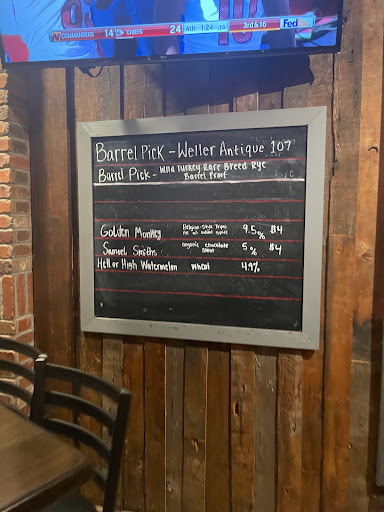 COMMANDERS 14 CHIEFS 24 4th 1:24 3rd & 16 FedEx
Barrel Pick - Weller Antique 107
Barrel Pick - Wild Turkey Rare Breed Rye
Barrel Proof
Golden Monkey Belgian-Style Tripel 9.5% $4
added spices
Samuel Smiths organic chocolate 5% $4
stout
Hell or High Watermelon wheat 4.9%